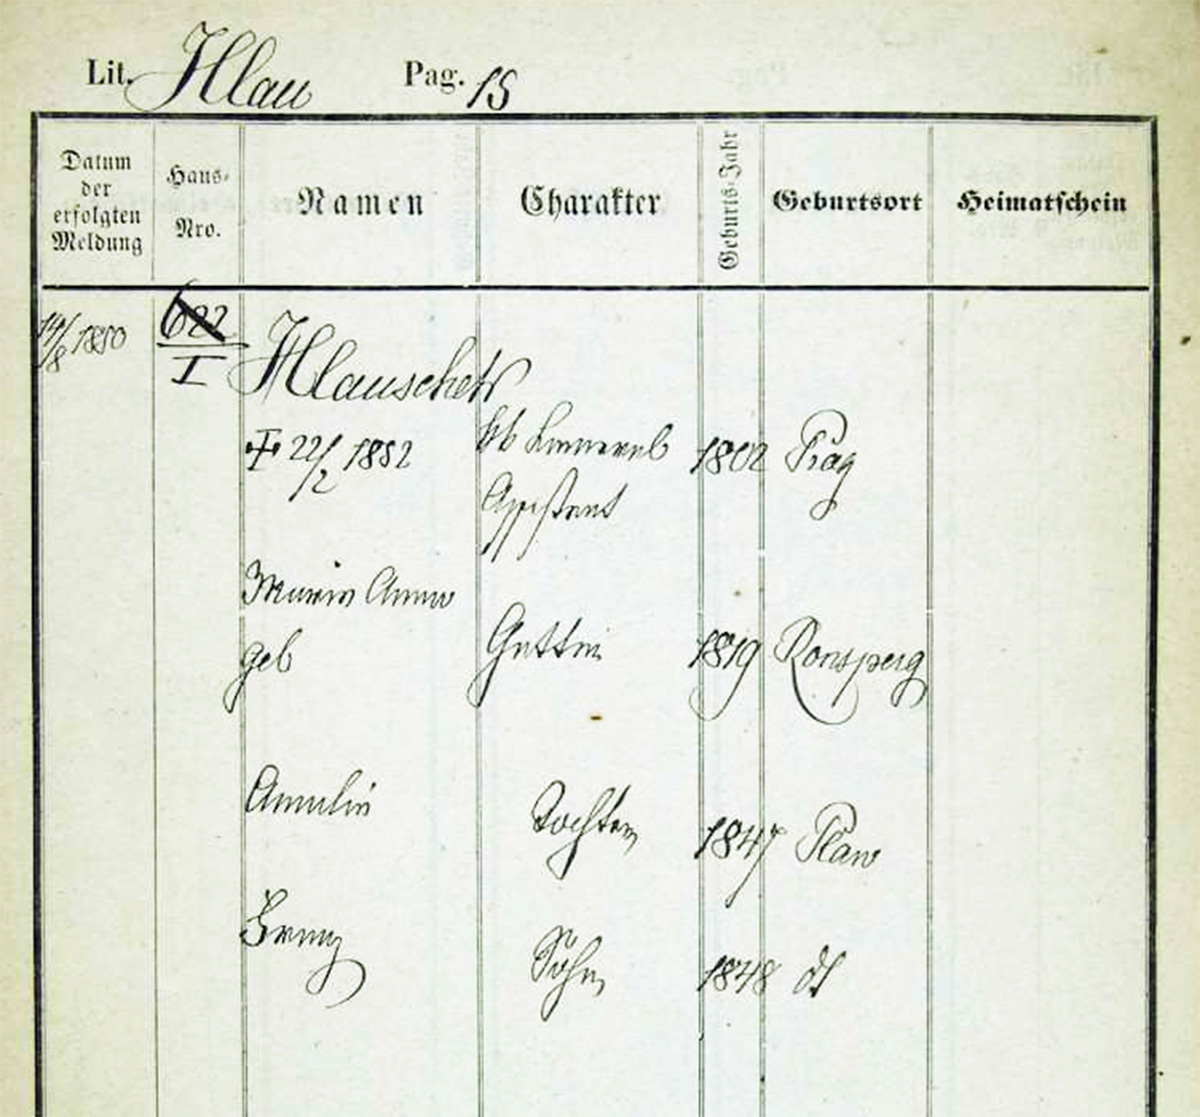 Lit. Hlau Pag. 15
Datum
der
erfolgten
Meldung
Haus-
Nro.
Namen
Charakter
Geburts-Jahr
Geburtsort
Heimatschein
14/8 1850
622
I
Hlauschek
kk Kameral
1802 Prag
✝ 22/2 1852
Assistent
Maria Anna
geb
Gattin
1819 Ronsperg
Amalia
Tochter
1847 Plan
Franz
Sohn
1848 dt